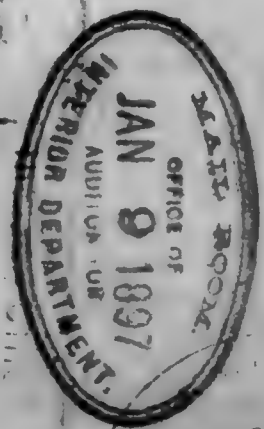 MAIL ROOM.
OFFICE OF
JAN 9 1897
AUDITOR FOR
INTERIOR DEPARTMENT.